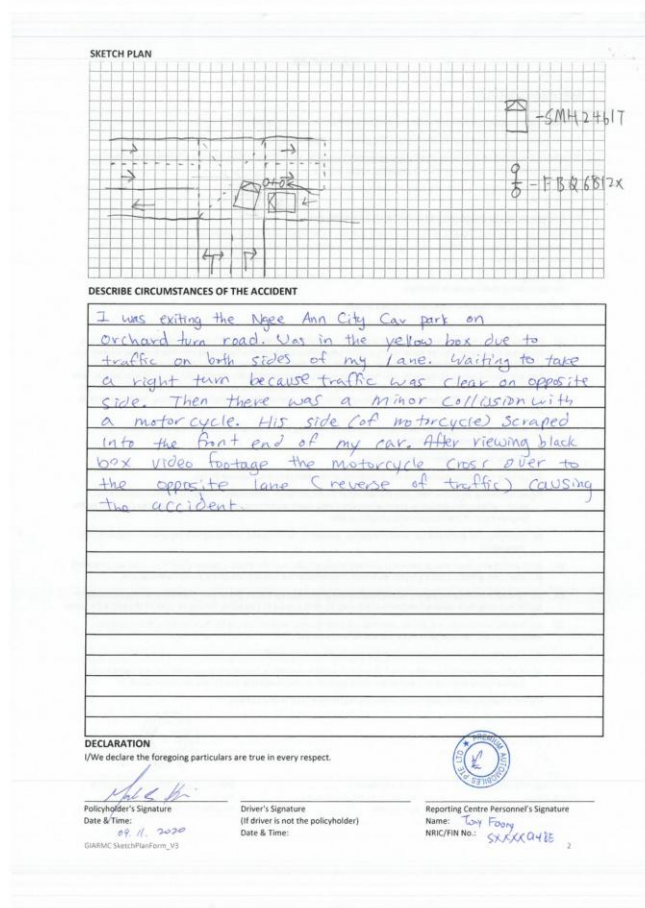 SKETCH PLAN
-SMH2461T
-FBQ6812X
DESCRIBE CIRCUMSTANCES OF THE ACCIDENT
I was exiting the Ngee Ann City Car park on
orchard turn road. Was in the yellow box due to
traffic on both sides of my lane. Waiting to take
a right turn because traffic was clear on opposite
side. Then there was a minor collission with
a motorcycle. His side (of motorcycle) scraped
into the front end of my car. After viewing black
box video footage the motorcycle cross over to
the opposite lane (reverse of traffic) causing
the accident.
DECLARATION
I/We declare the foregoing particulars are true in every respect.
PREMIUM AUTOMOBILES PTE LTD
Policyholder's Signature
Driver's Signature
Reporting Centre Personnel's Signature
Date & Time:
(If driver is not the policyholder)
Name: Foong
09. 11. 2020
Date & Time:
NRIC/FIN No.:
GIARMC SketchPlanForm_V3
2